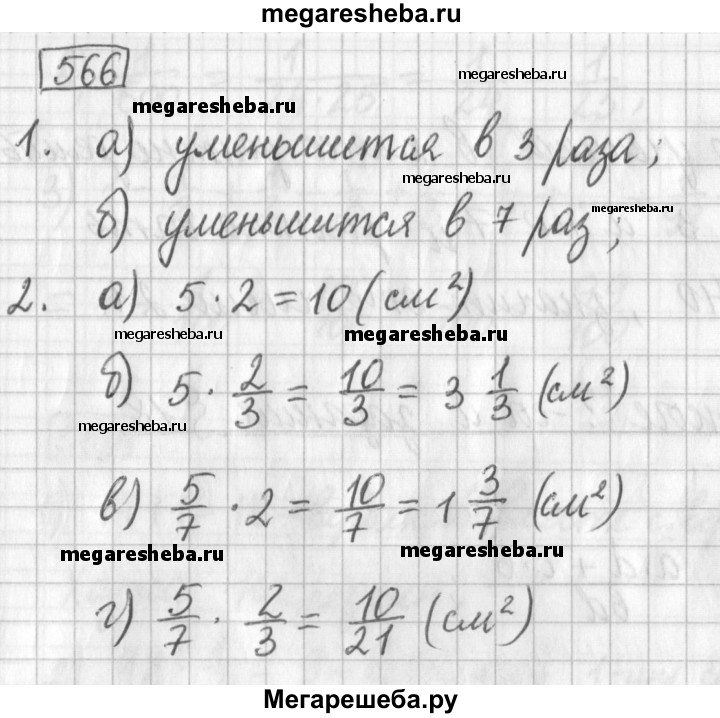 megaresheba.ru
566
megaresheba.ru
megaresheba.ru
1. а) уменьшится в 3 раза;
megaresheba.ru
б) уменьшится в 7 раз;
megaresheba.ru
megaresheba.ru
2. а) 5 · 2 = 10 (см²)
megaresheba.ru
megaresheba.ru
б) 5 · 2/3 = 10/3 = 3 1/3 (см²)
megaresheba.ru
в) 5/7 · 2 = 10/7 = 1 3/7 (см²)
megaresheba.ru
megaresheba.ru
г) 5/7 · 2/3 = 10/21 (см²)
Мегарешеба.ру